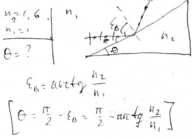 n₂ = 1,6.
n₁ = 1
θ = ?
n₁
ε_B
θ
n₂
ε_B = arctg n₂/n₁
[θ = π/2 - ε_B = π/2 - arctg n₂/n₁]